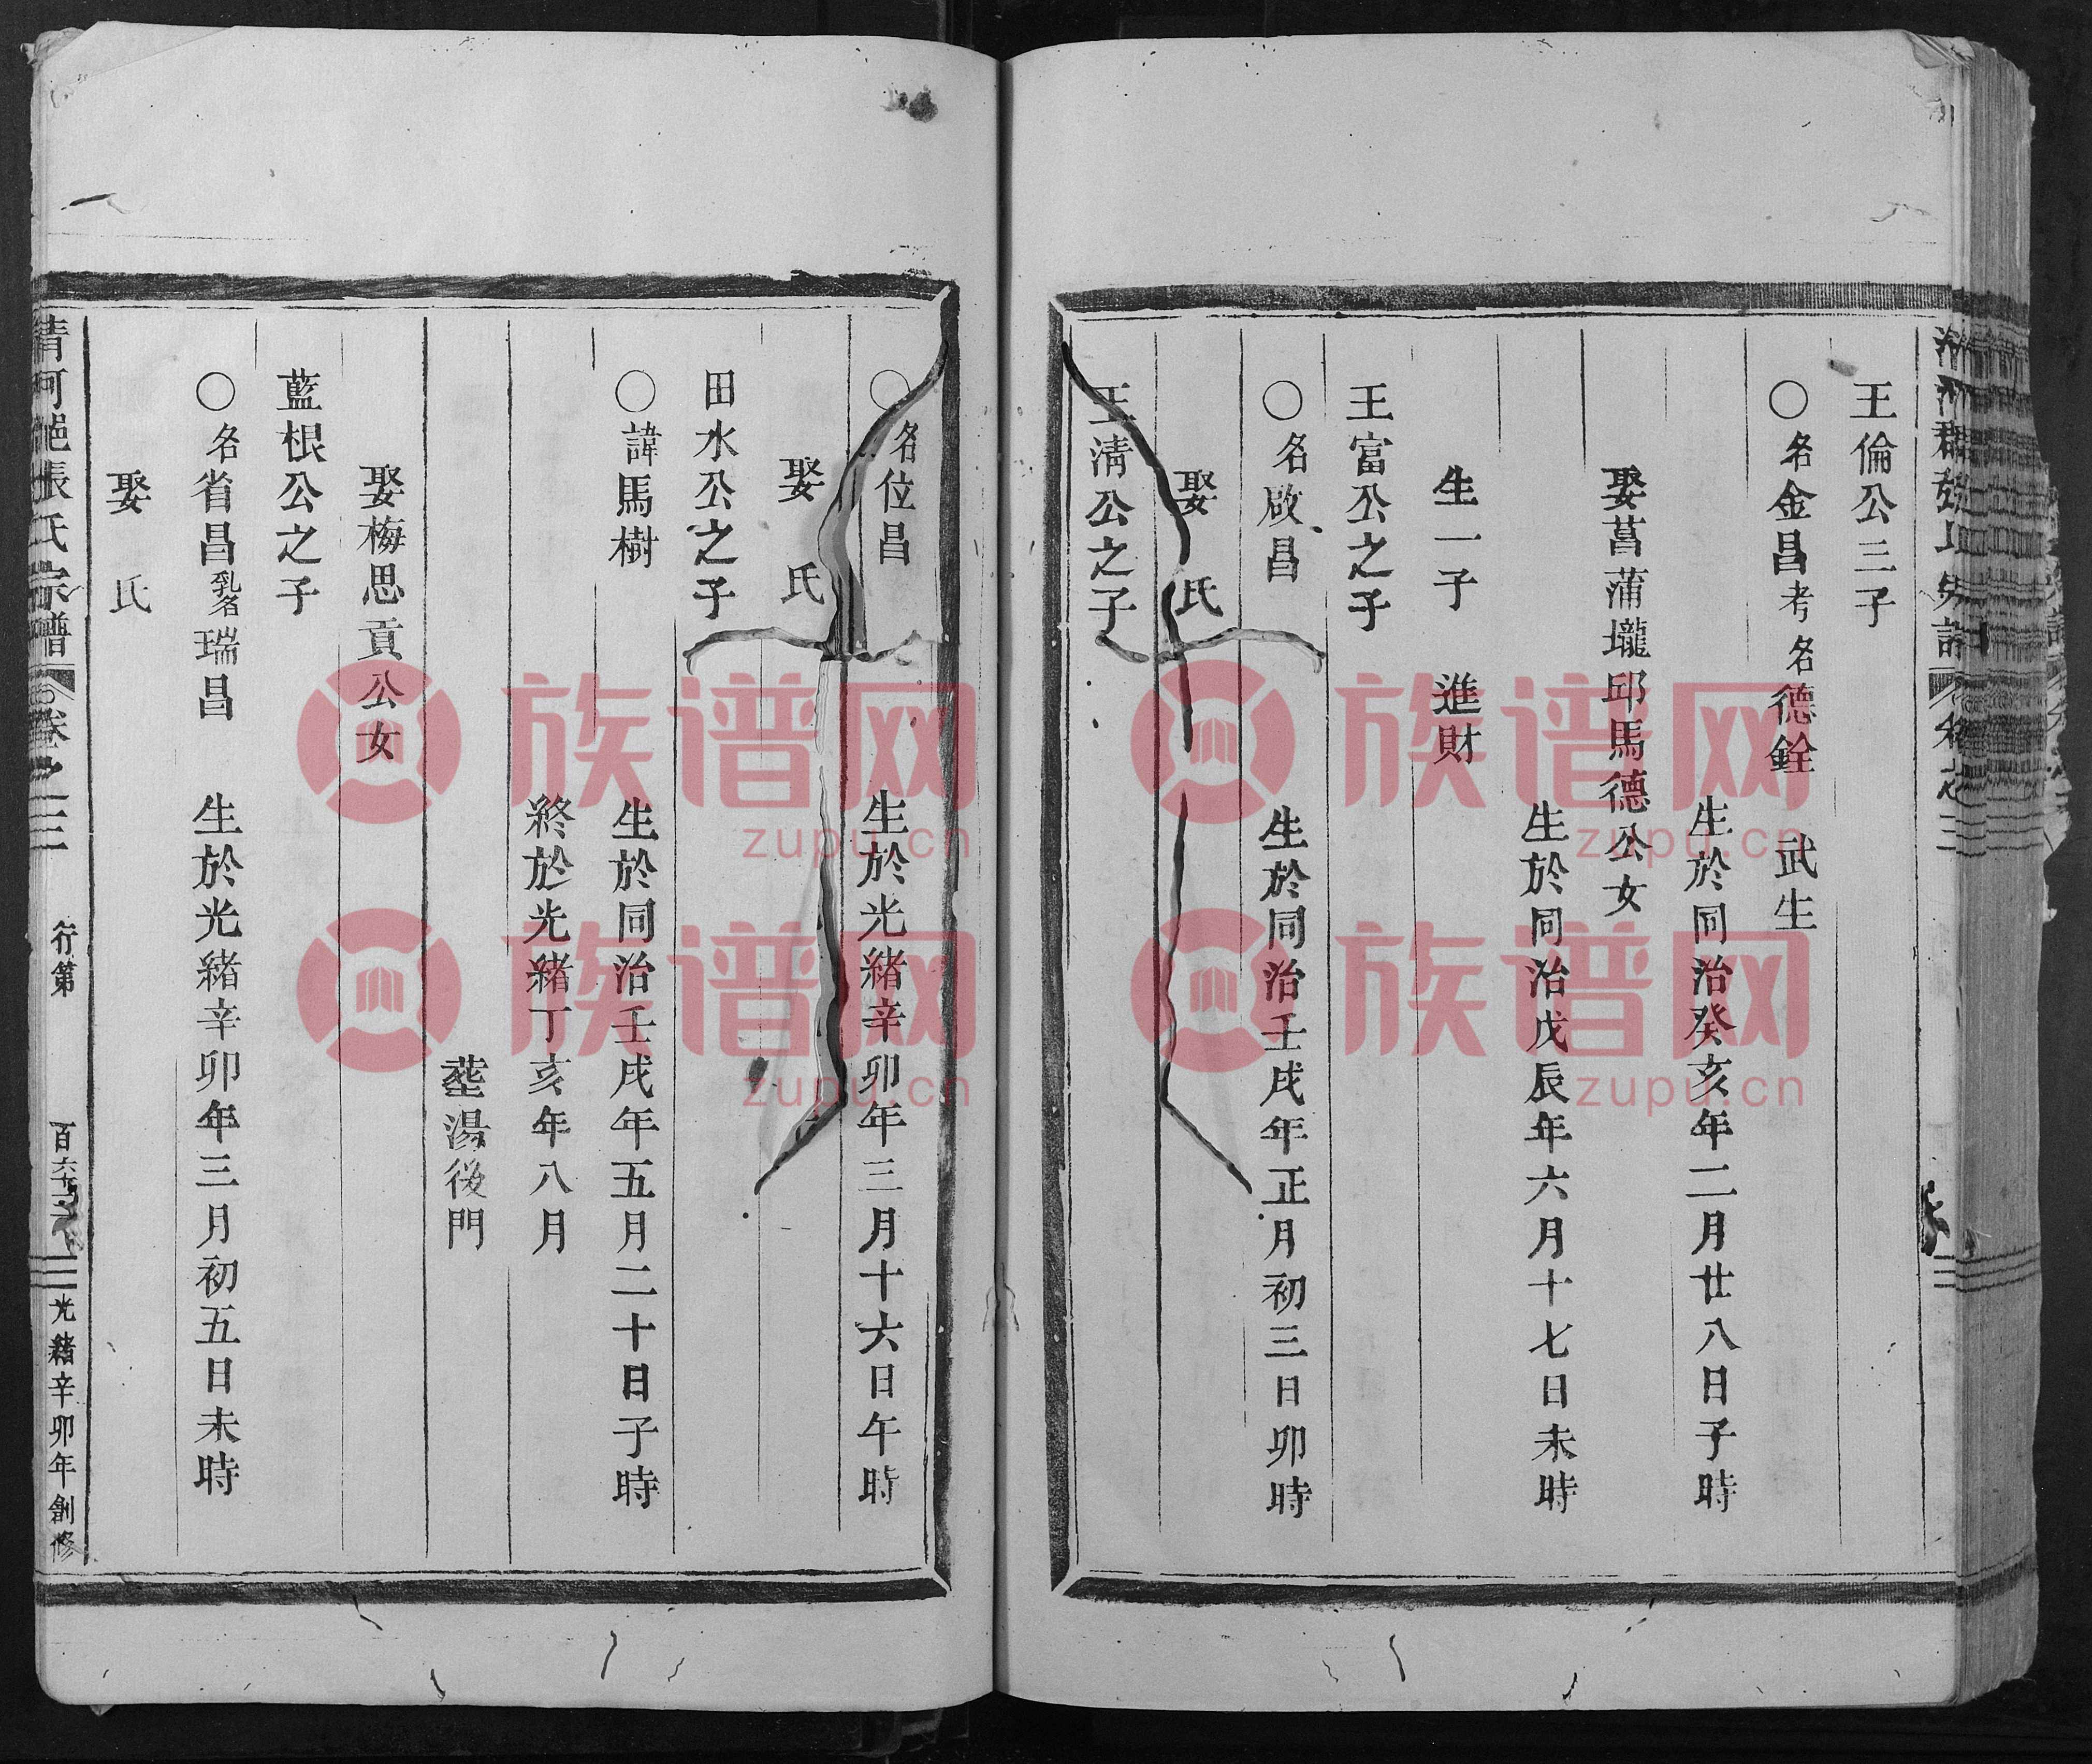 王倫公三子
〇名金昌考名德銓 武生
生於同治癸亥年二月廿八日子時
娶菖蒲壠邱馬德公女
生於同治戊辰年六月十七日未時
生一子 進財
王富公之子
〇名啟昌 生於同治壬戌年正月初三日卯時
娶 氏
王清公之子
〇名位昌 生於光緒辛卯年三月十六日午時
娶 氏
田水公之子
〇諱馬樹 生於同治壬戌年五月二十日子時
終於光緒丁亥年八月
塟湯後門
娶梅思貢公女
藍根公之子
〇名省昌乳名瑞昌 生於光緒辛卯年三月初五日未時
娶 氏
清河邑張氏宗譜 卷之三 行第 百六十 光緒辛卯年創修
族谱网
zupu.cn
族谱网
zupu.cn
族谱网
zupu.cn
族谱网
zupu.cn